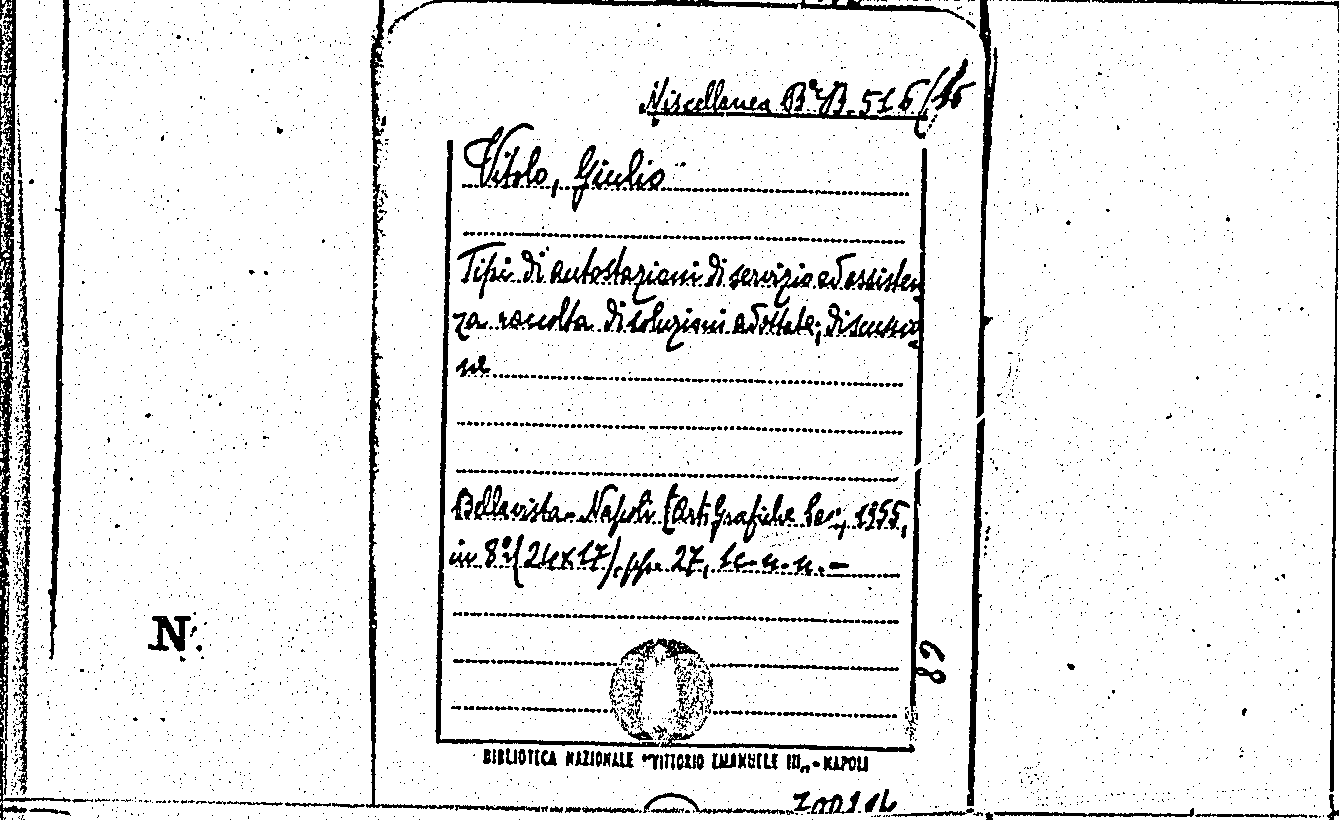 Miscellanea Bª B. 516/16
Vitolo, Giulio
Tipi di autostazioni di servizio ed assisten
za raccolta di soluzioni adottate; discussio
ne
Bellavista-Napoli (Arti Grafiche 1955,
in 8º (24x17), pp. 27, 1 c. n. n. -
N.
89
BIBLIOTECA NAZIONALE "VITTORIO EMANUELE III" - NAPOLI